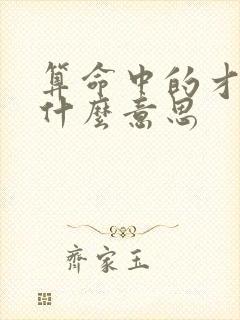 算命中的才
什麼意思
齊家玉